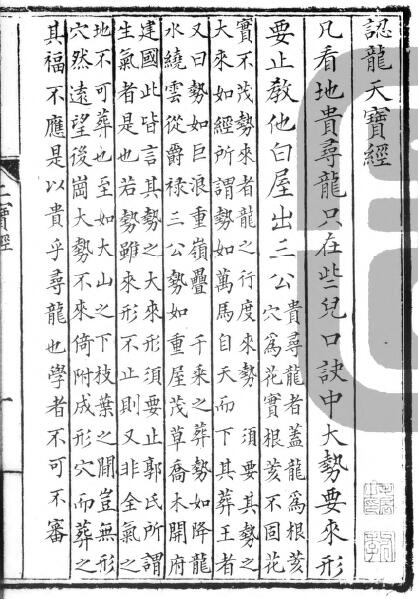 認龍天寶經
凡看地貴尋龍只在些兒口訣中大勢要來形
要止教他白屋出三公
貴尋龍者蓋龍爲根荄
穴爲花實根荄不同花
實不茂勢來者龍之行度來勢須要其勢之
大來如經所謂勢如萬馬自天而下其葬王者
又曰勢如巨浪重嶺疊 千乘之葬勢如降龍
水繞雲從爵祿三公勢如重屋茂草喬木開府
建國此皆言其勢之大來形須要止郭氏所謂
生氣者是也若勢雖來形不止則又非全氣之
地不可葬也至如大山之下枝葉之間豈無形
穴然遠望後崗大勢不來倚附成形穴而葬之
其福不應是以貴乎尋龍也學者不可不審
寶經